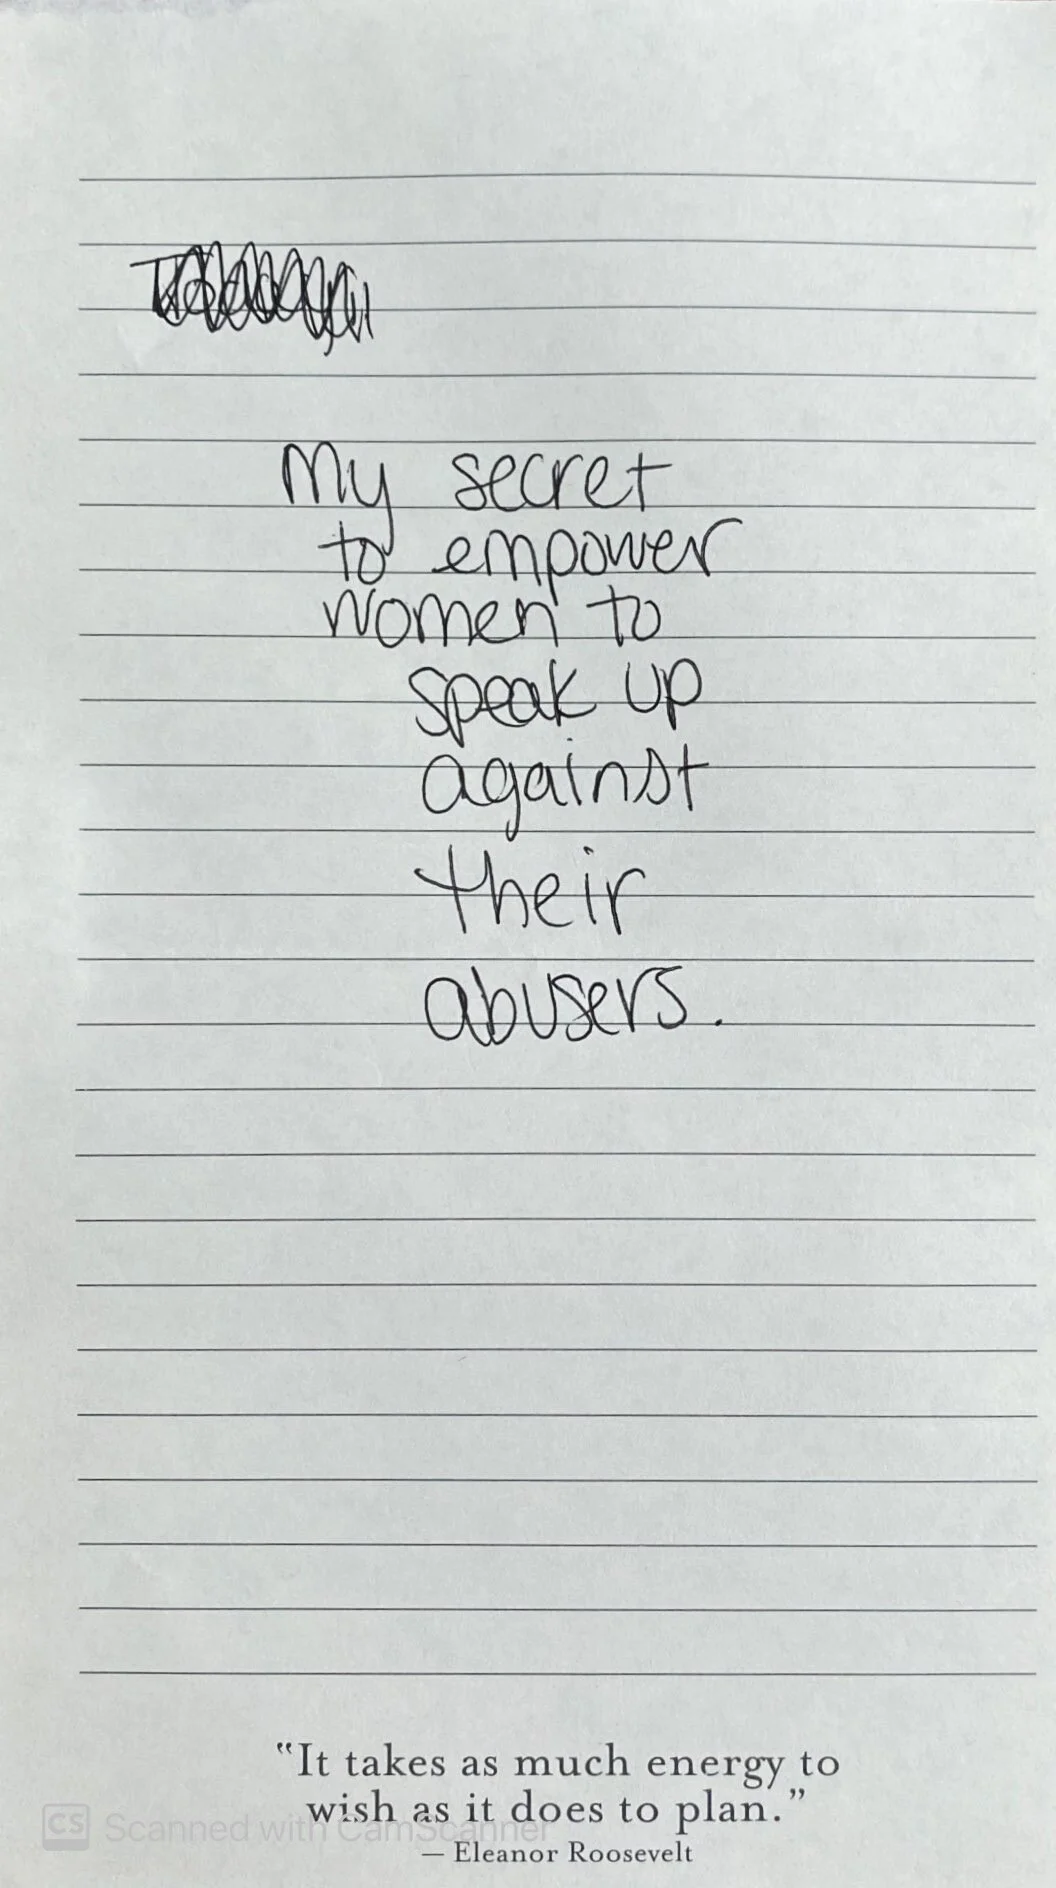 My secret
to empower
women to
speak up
against
their
abusers.
"It takes as much energy to
wish as it does to plan."
— Eleanor Roosevelt
CS Scanned with CamScanner